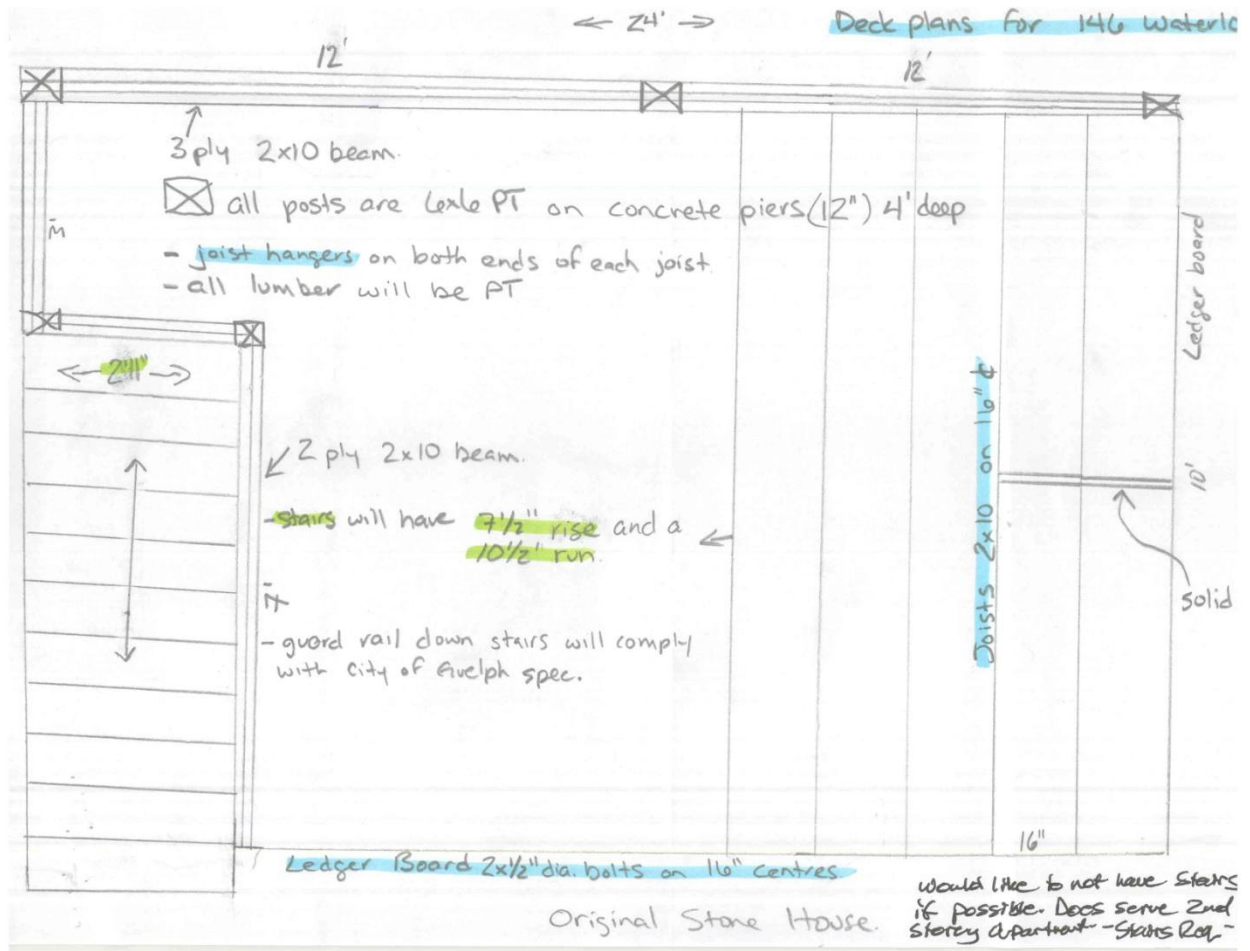 ← 24' →
Deck plans for 146 Waterlo
12'
12'
3 ply 2x10 beam.
all posts are 6x6 PT on concrete piers (12") 4' deep
- joist hangers on both ends of each joist.
- all lumber will be PT
3'
Ledger board
2'11"
Joists 2x10 on 16" ℄
2 ply 2x10 beam.
10'
- stairs will have 7 1/2" rise and a
10 1/2" run.
solid
7'
- guard rail down stairs will comply
with City of Guelph spec.
16"
Ledger Board 2x1/2" dia. bolts on 16" centres
Original Stone House.
would like to not have stairs
if possible. Does serve 2nd
storey apartment - Stairs Req -